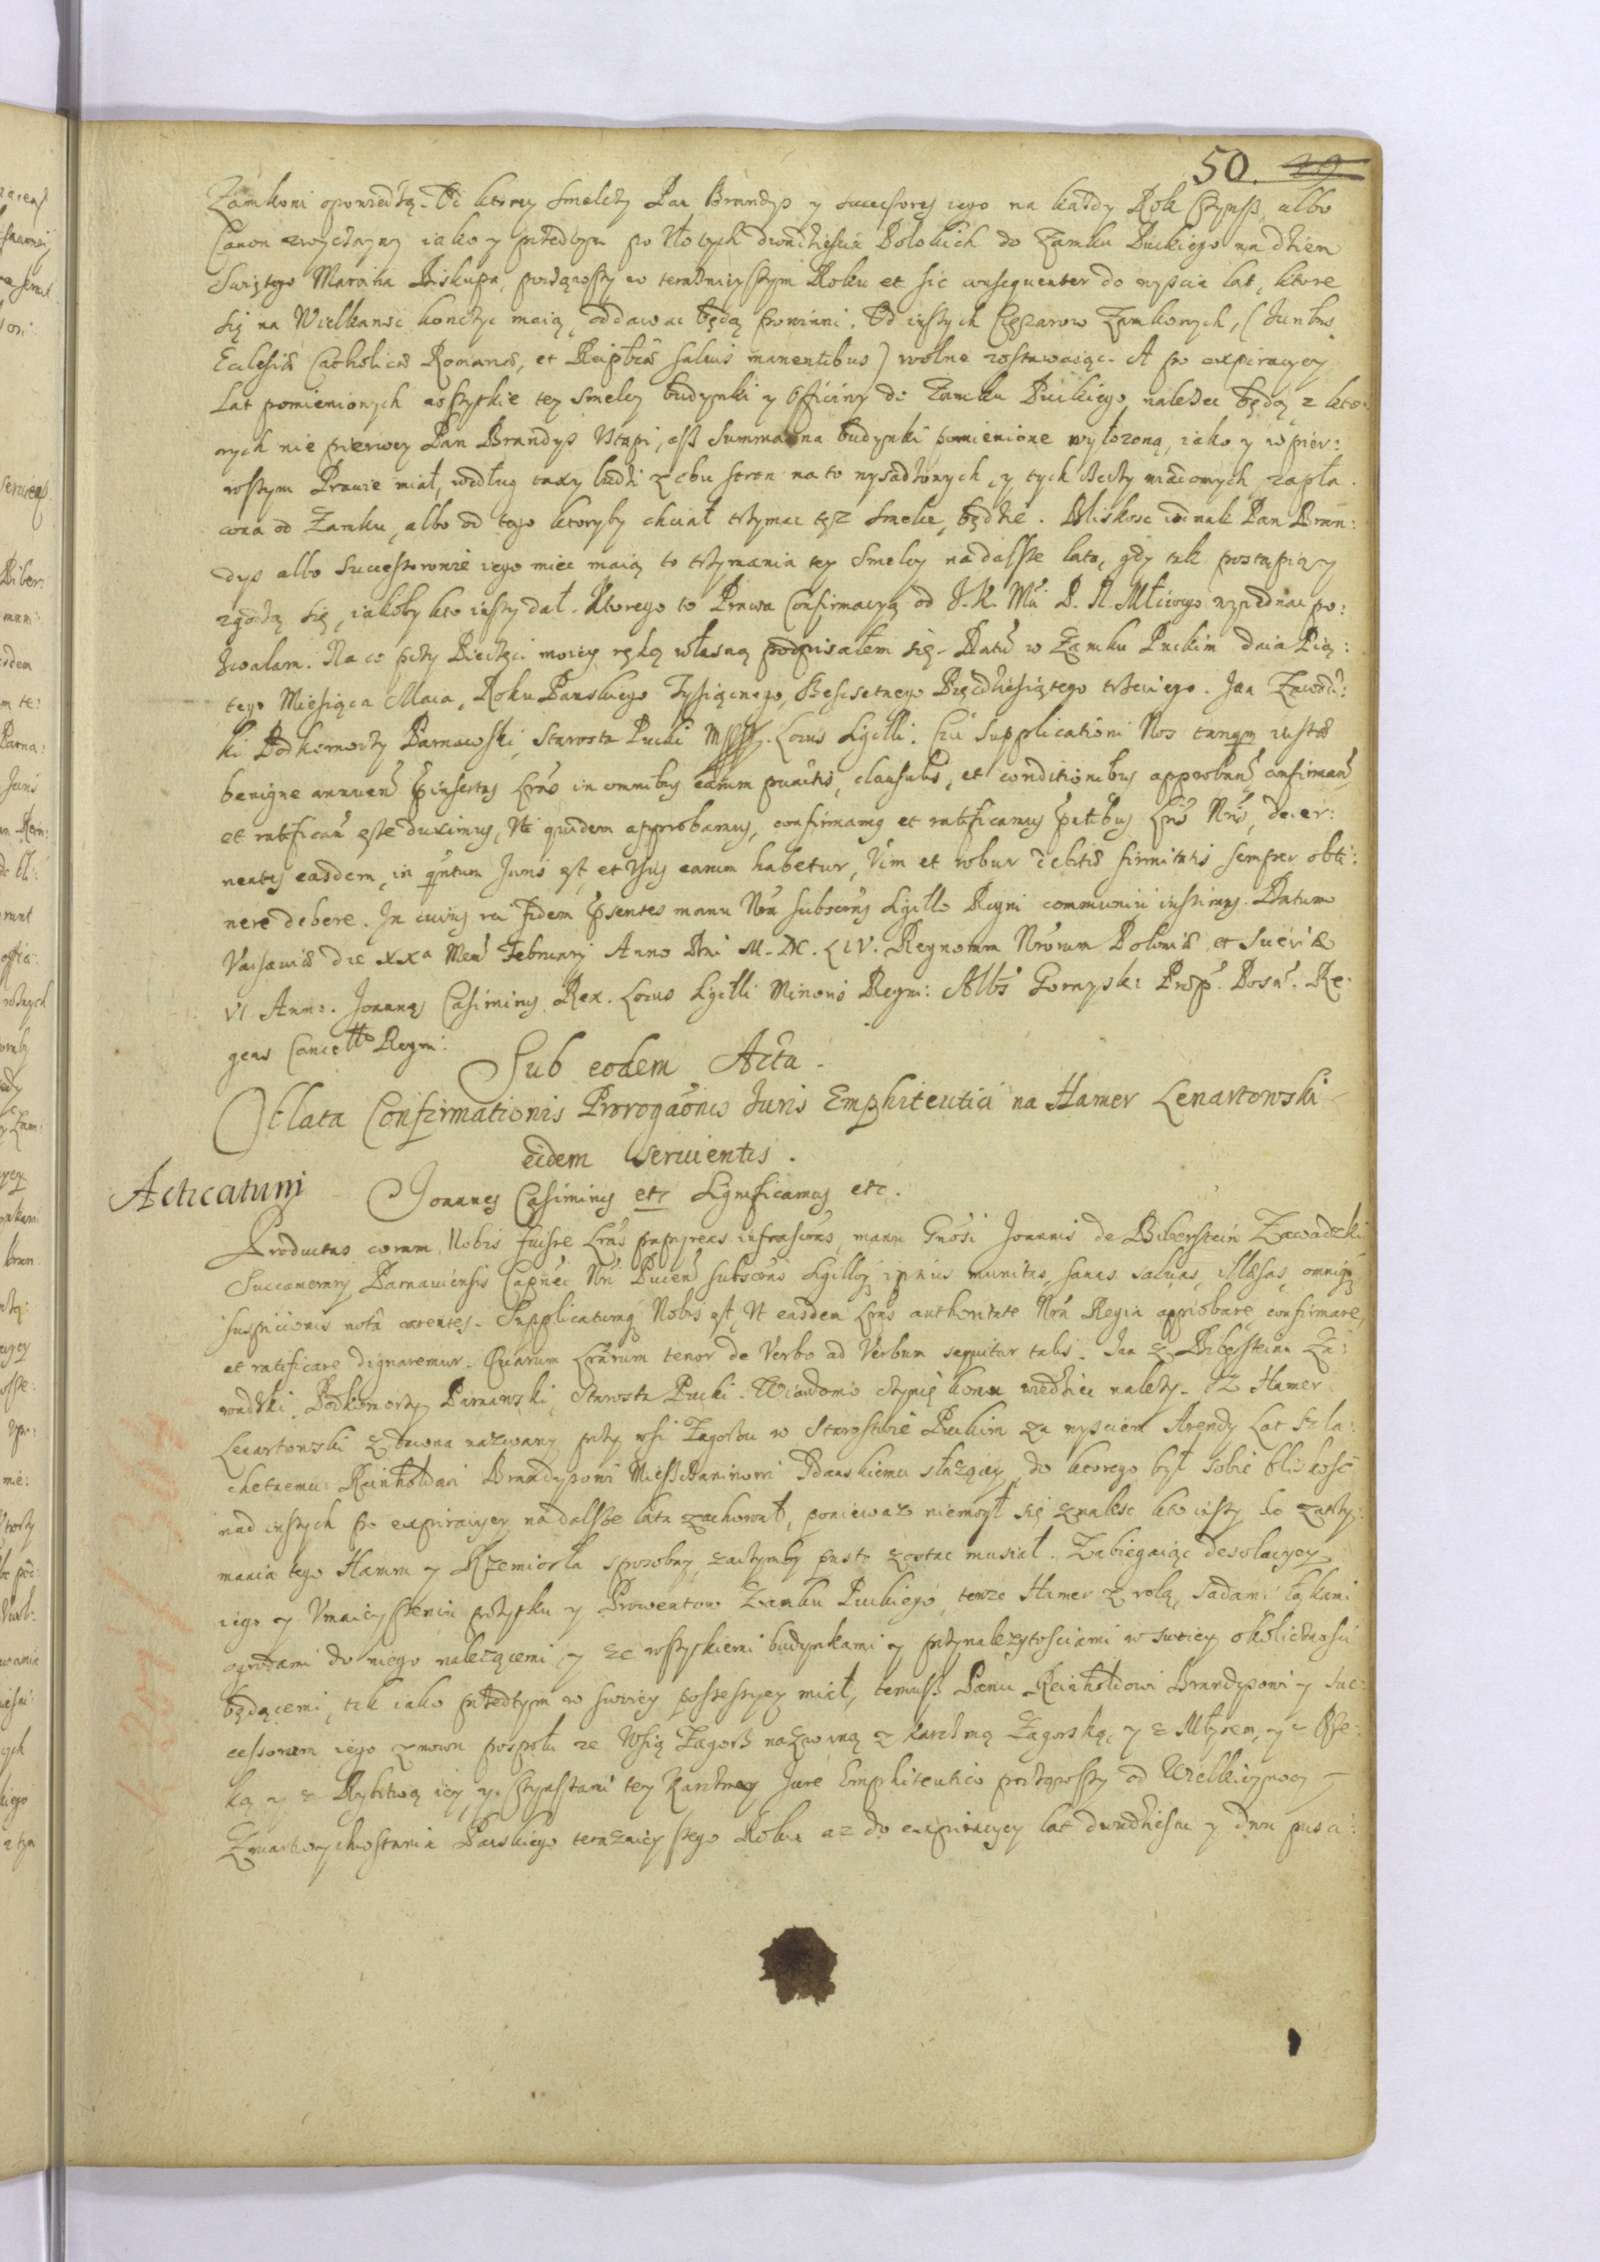 50. 29
Zamkowi opowiedzą. Od ktorey Smelczy Pan Brandys y successores iego na każdy Rok Czynsz, albo
Canon zwyczayny iako y przedtym po złotych dwadziescia Polskich do Zamku Puckiego na dzien
Swiętego Marcina Biskupa, począwszy w teraznieyszym Roku et sic consequenter do wyscia lat, ktore
się na Wielkanoc konczyc maią, oddawac będą powinni. Od inszych Cięzarow Zamkowych, (Juribus
Eclesiæ Catholicæ Romanæ, et Reipbcæ salvis manentibus) wolne zostawaiąc. A po expiracyey
Lat pomienionych wszystkie tey Smelcy budynki y Officiny do Zamku Puckiego nalezec będą, z kto:
rych nie pierwey Pan Brandys Ustąpi, asz Summa na budynki pomienione wyłozona, iako y w pier:
wszym Prawie miał, według taxy ludzi z obu stron na to wysadzonych, y tych Rzeczy wiadomych, zapła:
cona od Zamku, albo od tego ktoryby chciał trzymac tęz Smelcę, będzie. Bliskosc iednak Pan Bran:
dys albo Successorowie iego miec maią to trzymania tey Smelcy na dalsze lata, gdy tak postąpią y
zgodzą się, iakoby kto inszy dał. Ktorego to Prawa Confirmacyą od J. K. Mci P. N. Młciwego wyiednac po:
zwalam. Na co przy Pieczęci moiey ręką własną podpisałem się. Datũ w Zamku Puckim dnia Pią:
tego Miesiąca Maia, Roku Panskiego Tysiącznego, Szescsetnego Pięcdziesiątego trzeciego. Jan Zawodz:
ki Podkomorzy Parnawski, Starosta Pucki mpp. Locus Sigilli. Cui Supplicationi Nos tanqm iustæ
benigne annuen̄ p̄insertas Lr̄as in omnibus earum punctis, clausulis, et conditionibus approban̄ confirman̄
et ratifican̄ esse duximus, Uti quidem approbamus, confirmamq et ratificamus p̄ntibus Lr̄is Nr̄is, decer:
nentes easdem, in qn̄tum Juris est, et Usus earum habetur, Vim et robur debitæ firmitatis semper obti:
nere debere. In cuius rei fidem p̄sentes manu Nr̄a subscr̄as Sigillo Regni communiri iussimus. Datum
Varsaviæ die XXa Men̄ Februarij Anno Dn̄i M. DC. LIV. Regnorum Nr̄orum Poloniæ et Sueciæ
VI Anno. Joannes Casimirus Rex. Locus Sigilli Minoris Regni: Albs Gorayski Præp. Posn. Re:
gens Cancellr Regni:
Sub eodem Acta.
Oblata Confirmationis Prorogaõnis Juris Emphiteutici na Hamer Lenartowski
eidem servientis.
Acticatum Joannes Casimirus etc Significamus etc.
Productas coram Nobis fuisse Lr̄as papyreas infrascr̄as, manu Gn̄osi Joannis de Biberstein Zawadzki
Succamerarij Parnaviensis Capn̄ei Nr̄i Pucen̄ subscr̄as Sigilloq ipsius munitas, sanas, salvas, illæsas, omniq
suspicionis nota carentes. Supplicatumq Nobis est, Ut easdem Lr̄as authoritate Nr̄a Regia approbare, confirmare,
et ratificare dignaremur. Quarum Lr̄arum tenor de Verbo ad Verbum sequitur talis. Jan z Biberszteina Za:
wadzki, Podkomorzy Parnawski, Starosta Pucki. Wiadomo czynię komu wiedziec nalezy. Iz Hamer
Lenartowski z dawna nazwany przy wsi Zagorzu w Starostwie Puckim za wysciem Arendy Lat Szla:
chetnemu Reinholdowi Brandysowi Mieszczaninowi Gdanskiemu słuzący, do ktorego był sobie bliskosc
nad inszych po expiracyey na dalsze lata zachował, poniewaz niemogł się znalesc kto inszy do zatrzy:
mania tego Hamru y Rzemiosła sposobny, zaczymby pusto zostac musiał. Zabiegaiąc desolacyey
iego y Umnieyszeniu pozytku y Prowentow Zamku Puckiego, tenze Hamer z rolą, sadami łąkami
ogrodami do niego nalezącemi, y ze wszystkiemi budynkami y przynalezytosciami w swoiey okolicznosci
będącemi, tak iako przedtym w swoiey possessyey miał, temusz Panu Reinholdowi Brandysowi y Suc:
cessorom iego znowu pospołu ze Wsią Zagorz nazwaną z Karczmą Zagorską, y z Młynem, y z Rze:
ką y z Rybitwą iey y Czynszami tey Karczmy Jure Emphiteutico począwszy od Wielkieynocy
Zmartwychwstania Panskiego teraznieyszego Roku az do expiracyey lat dwudziestu y dwu pusci: